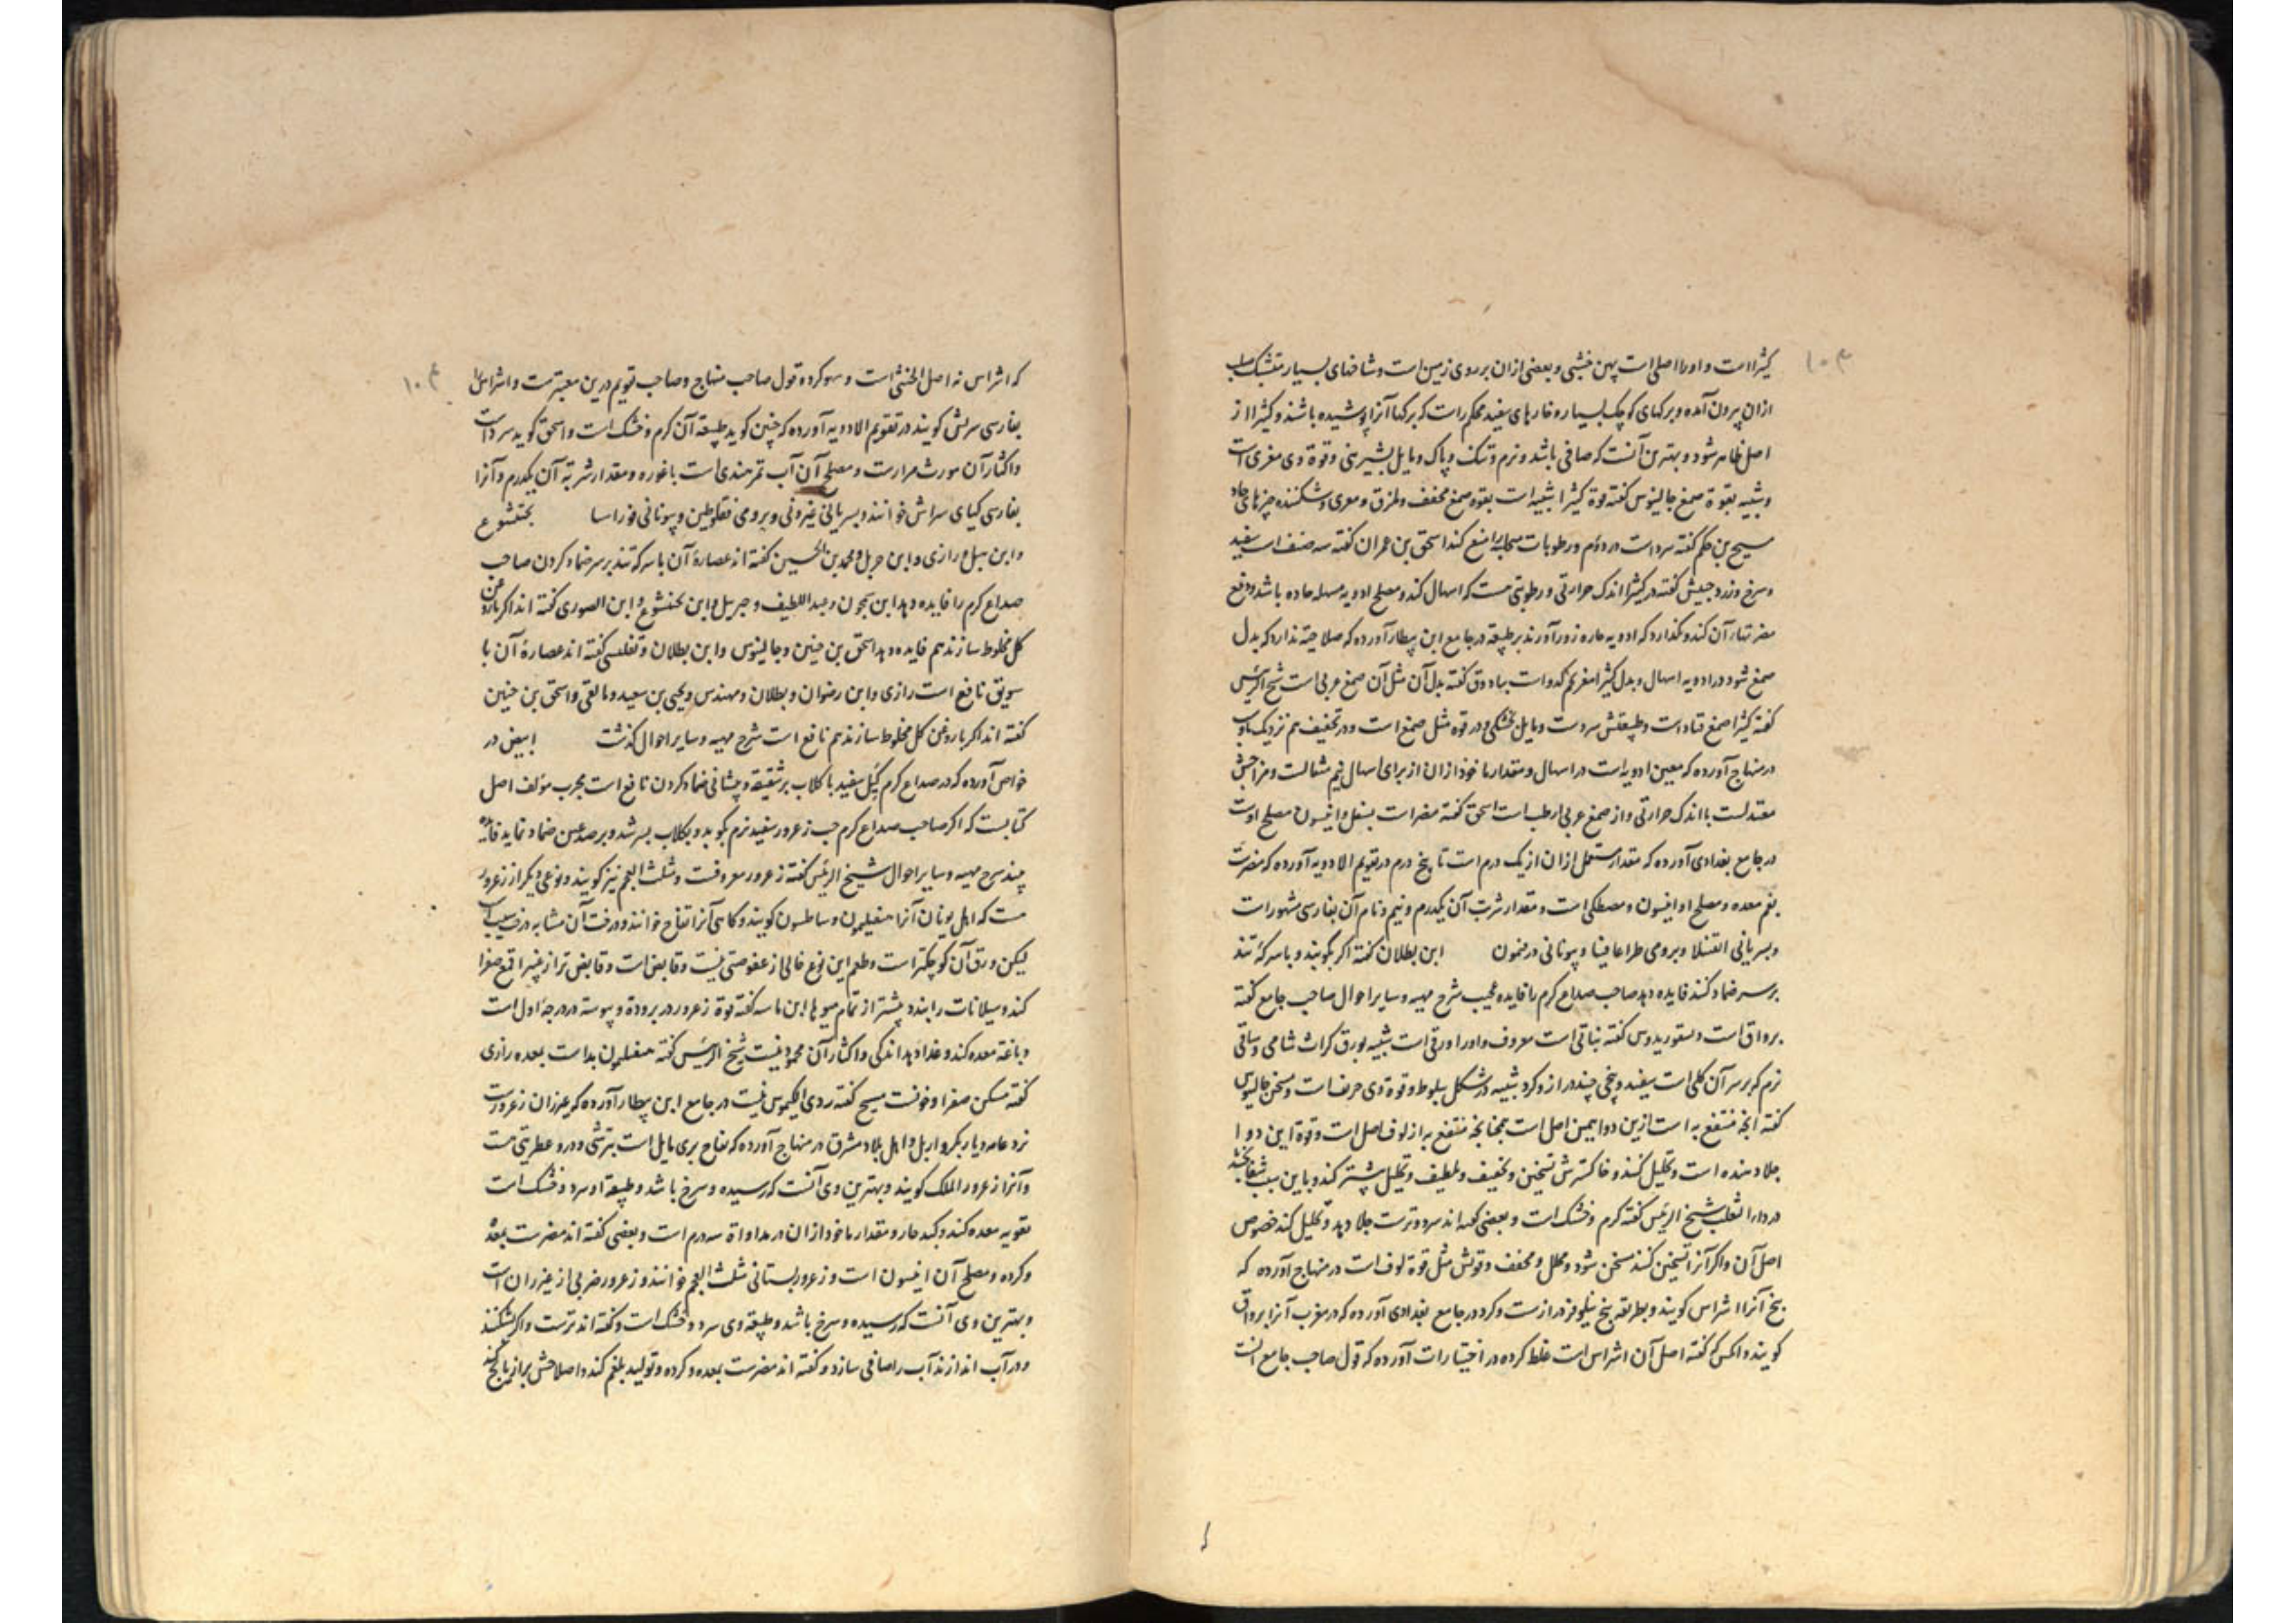 کثیراست و اورا اصلی است پهن خشبی و بعضی ازان بر روی زمین است و شاخهای بسیار
ازان بیرون آمده و برکهای کوچک بسیار و خارهای سفید محکم راست که برکها آنرا پوشیده باشند و کثیرا از
اصل ظاهر شود و بهترین آنست که صافی باشد و نرم و تنک و پاک و مایل بشیرینی و قوة وی مغری است
و شبیه بقوة صمغ جالینوس کفته قوة کثیرا شبیه است بقوه صمغ مجفف و ملزق و مغری و شکننده چیزهای حاد
مسیح بن حکم کفته سرد است در دوم و رطوبات را منع کند اسحق بن عمران کفته سه صنف است سفید
و سرخ و زرد حبیش کفته در کثیرا اندک حرارتی و رطوبتی هست که اسهال کند و مصلح ادویه مسهله حاده باشد و دفع
مضرتهای آن کند و نکذارد که ادویه حاره زور آورند بر طبیعة در جامع ابن بیطار آورده که صلاحیة ندارد که بدل
صمغ شود در ادویه اسهال و بدل کثیرا مغز تخم کدو است بهادوق کفته بدل آن مثل آن صمغ عربی است شیخ الرئیس
کفته کثیرا صمغ قتاد است و طبیعتش سردست و مایل بخشکی و در قوه مثل صمغ است و در تجفیف هم نزدیک باوست
در منهاج آورده که معین ادویه است در اسهال و مقدار ماخوذ ازان از برای اسهال نیم مثقالست و مزاجش
معتدلست با اندک حرارتی و از صمغ عربی ارطب است اسحق کفته مضر است بسفل و انیسون مصلح اوست
در جامع بغدادی آورده که مقدار مستعمل ازان از یک درم است تا پنج درم در تقویم الادویه آورده که مضرست
بفم معده و مصلح او انیسون و مصطکی است و مقدار شربت آن یکدرم و نیم و نام آن بفارسی مشهور است
و بسریانی و برومی طراغاقیثا و بیونانی ابن بطلان کفته اکر بکوبند و باسرکه تند
برسر ضماد کنند فایده دهد صاحب صداع کرم را فایده عجیب شرح مهیه و سایر احوال صاحب جامع کفته
برواق است دیسقوریدوس کفته نباتی است معروف و اورا ورقی است شبیه بورق کراث شامی و ساقی
نرم که بر سر آن کلی است سفید و بیخی چند دراز و کرد شبیه در شکل ببلوط و قوة وی حریفست و مسخن جالینوس
کفته آنچه منتفع به است ازین دوا همین اصل است همچنانچه منتفع به از لوف اصل است و قوة این دوا
جلا دهنده است و تحلیل کننده و خاکسترش تسخین و تجفیف و تلطیف و تحلیل بیشتر کند و باین سبب شفا بخشد
در داء الثعلب شیخ الرئیس کفته کرم و خشک است و بعضی کفته اند سرد و ترست جلا دهد و تحلیل کند خصوص
اصل آن و اکر آنرا تسخین کنند مسخن شود و محلل و مجفف و قوتش مثل قوة لوف است در منهاج آورده که
بیخ آنرا اشراس کویند و بطریقه بیخ نیلوفر درازست و کرد در جامع بغدادی آورده که در مغرب آنرا برواق
کویند و انکس که کفته اصل آن اشراس است غلط کرده در اختیارات آورده که قول صاحب جامع آنست
۱۰۳
که اشراس نه اصل الخنثی است و سهو کرده قول صاحب منهاج و صاحب تقویم درین معتبرست و اشراس را
بفارسی سریش کویند در تقویم الادویه آورده که حنین کوید طبیعة آن کرم و خشک است و اسحق کوید سرد است
و اکثار آن مورث مرارت و مصلح آن آب تمر هندی است با غوره و مقدار شربة آن یکدرم و آنرا
بفارسی کیای سراش خوانند و بسریانی و برومی و بیونانی بختیشوع
و ابن سهل و رازی و ابن جزله و محمد بن الحسین کفته اند عصارة آن با سرکه تند بر سر ضماد کردن صاحب
صداع کرم را فایده دهد ابن سمجون و عبد اللطیف و جبریل و ابن بختیشوع و ابن الصوری کفته اند اکر با روغن
کل مخلوط سازند هم فایده دهد اسحق بن حنین و جالینوس و ابن بطلان و تفلیسی کفته اند عصارة آن با
سویق نافع است رازی و ابن رضوان و بطلان و مهندس و یحیی بن سعید و مالقی و اسحق بن حنین
کفته اند اکر با روغن کل مخلوط سازند هم نافع است شرح مهیه و سایر احوال کذشت ابیض در
خواص آورده که در صداع کرم کل سفید با کلاب بر شقیقه و پیشانی ضماد کردن نافع است مجرب مؤلف اصل
کتابست که اکر صاحب صداع کرم حب زعرور سفید نرم بکوبد و بکلاب بسرشد و بر صدغین ضماد نماید فایده
بیند شرح مهیه و سایر احوال شیخ الرئیس کفته زعرور معروفست و مثلث العجم نیز کویند و نوعی دیکر از زعرور
هست که اهل یونان آنرا و کویند و کاهی آنرا تفاح خوانند و درخت آن مشابه درخت سیب است
لیکن ورق آن کوچکتر است و طعم این نوع خالی از عفوصتی نیست و قابض است و قابض تر از غبیرا قمع صفرا
کند و سیلانات را ببندد بیشتر از تمام میوها ابن ماسه کفته قوة زعرور در برودة و یبوسة در درجه اول است
دباغة معده کند و غذا دهد اندکی و اکثار آن محمود نیست شیخ الرئیس کفته بد است بمعده رازی
کفته مسکن صفرا و خونست مسیح کفته ردی الکیموس نیست در جامع ابن بیطار آورده که عیزران زعرورست
نزد عامه دیار بکر و اربل و اهل بلاد مشرق در منهاج آورده که تفاح بری مایل است بترشی و درو عطریتی هست
و آنرا زعرور الملک کویند و بهترین وی آنست که رسیده و سرخ باشد و طبیعة او سرد و خشک است
تقویه معده کند و کبد حار و مقدار ماخوذ ازان در مداواة سه درم است و بعضی کفته اند مضرست بمعده
و کرده و مصلح آن انیسون است و زعرور بستانی مثلث العجم خوانند و زعرور ضربی از عیزران است
و بهترین وی آنست که رسیده و سرخ باشد و طبیعة وی سرد و خشک است و کفته اند ترست و اکر بشکنند
و در آب اندازند آب را صافی سازد و کفته اند مضرست بمعده و کرده و تولید بلغم کند و اصلاحش برازیانج کنند
۱۰۴